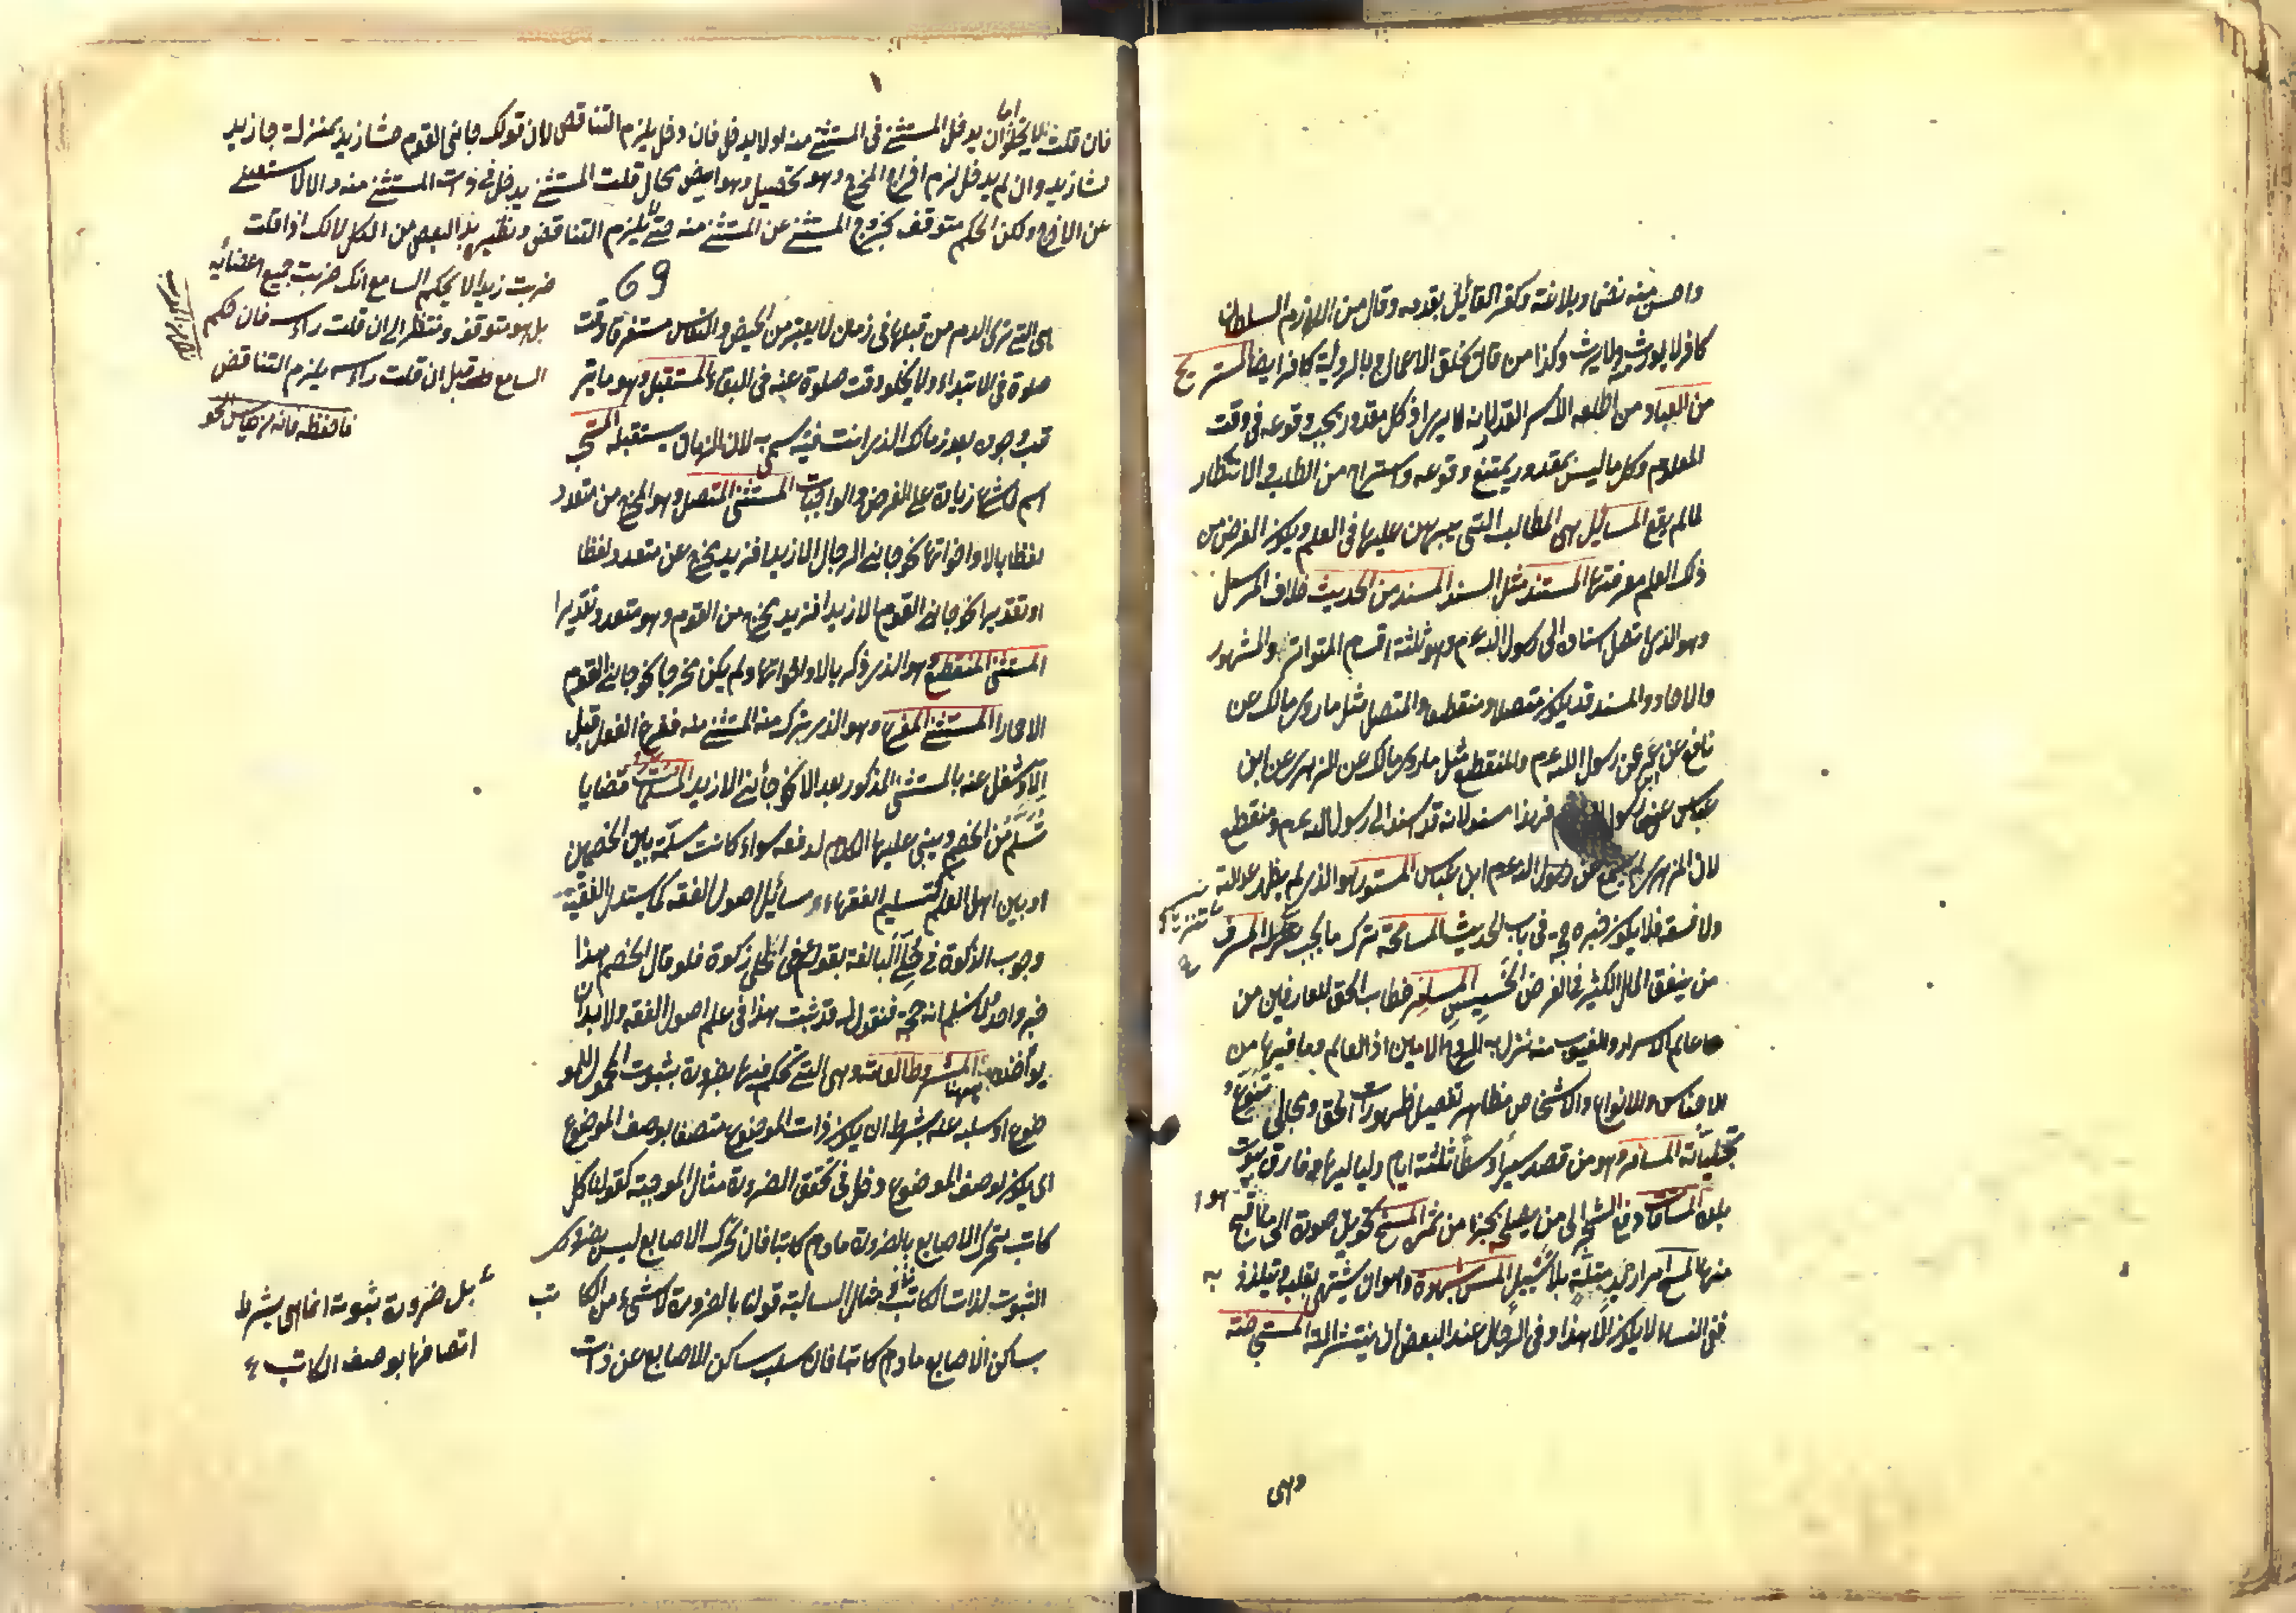 واحسن منه نظما وبلاغة وكفر القائل بقدمه وقال من لازم السلطان
كافر لا يورث ولا يرث وكذا من قال بخلق الاعمال وبالرؤية كافر ايضا المستريح
من العباد من اطلعه الله على سر القدر لانه يرى ان كل مقدور يجب وقوعه في وقت
المعلوم وكل ما ليس بمقدور يمتنع وقوعه واستراح من الطلب والانتظار
لما لم يقع المسائل هي المطالب التي يبرهن عليها في العلم ويكون الغرض من
ذلك العلم معرفتها المستند مثل السند المسند من الحديث خلاف المرسل
وهو الذي اتصل اسناده الى رسول الله عم وهو ثلثة اقسام المتواتر والمشهور
والاحاد والمسند قد يكون متصلا ومنقطعا والمتصل مثل ما روى مالك عن
نافع عن ابن عمر عن رسول الله عم والمنقطع مثل ما روى مالك عن الزهري عن ابن
عباس عن رسول الله عم فهذا مسند لانه قد اسند الى رسول الله عم ومنقطع
لان الزهري لم يسمع عن ابن عباس المستور هو الذي لم يظهر عدالته
ولا فسقه فلا يكون خبره حجة في باب الحديث المسامحة ترك ما يجب تنزها المسرف
من ينفق المال الكثير في الغرض الخسيس المسامرة خطاب الحق للعارفين من
عالم الاسرار والغيوب منه نزل به الروح الامين اذ العالم وما فيها من
الاجناس والانواع والاشخاص مظاهر تفصيل ظهورات الحق ومجالى تنوع
تجلياته المسافر هو من قصد سيرا وسطا ثلثة ايام ولياليها وفارق بيوت
بلده المساقاة دفع الشجر الى من يصلحه بجزء من ثمره المسخ تحويل صورة الى ما هو اقبح
منها المسح امرار اليد المبتلة بلا تسييل المس بشهوة وهو ان يشتهي بقلبه ويتلذذ به
ففي النساء لا يكون الا هذا وفي الرجال عند البعض ان ينتشر الته المستحاضة
وهي
فان قلت لا يخلو اما ان يدخل المستثنى في المستثنى منه او لا يدخل فان دخل يلزم التناقض لان قولك جاءني القوم الا زيد بمنزلة جاء زيد
الا زيد وان لم يدخل لزم اخراج المخرج وهو تحصيل وهو ايض محال قلت المستثنى يدخل في ذات المستثنى منه والا لا يستعمل
عن الاخراج ولكن الحكم متوقف بخروج المستثنى عن المستثنى منه حتى لا يلزم التناقض ونظيره بدل البعض من الكل لانك اذا قلت
ضربت زيدا لا يحكم السامع انك ضربت جميع اعضائه
بل هو متوقف ومنتظر الى ان قلت رأسه فان حكم
السامع قبل ان قلت رأسه يلزم التناقض
فاحفظه فانه من
69
هي التي ترى الدم من قبلها في زمان لا يعتبر من الحيض والنفاس مستغرقا وقت
صلوة في الابتداء ولا يخلو وقت صلوة عنه في البقاء المستقبل وهو ما يتر
قب وجوده بعد زمانك الذي انت فيه يسمى به لان الزمان يستقبله المستحب
اسم لما شرع زيادة على الفرض والواجبات المستثنى المتصل وهو المخرج من متعدد
لفظا بالا واخواتها نحو جاءني الرجال الا زيدا فزيد يخرج عن متعدد لفظا
او تقديرا نحو جاءني القوم الا زيدا فزيد يخرج من القوم وهو متعدد تقديرا
المستثنى المنقطع وهو الذي ذكر بالا واخواتها ولم يكن مخرجا نحو جاءني القوم
الا حمارا المستثنى المفرغ وهو الذي ترك منه المستثنى منه ففرغ الفعل قبل
الا وشغل عنه بالمستثنى المذكور بعد الا نحو جاءني الا زيد المسلمات قضايا
تسلم من الخصم ويبنى عليها الكلام لدفعه سواء كانت مسلمة بين الخصمين
او بين اهل العلم كتسليم الفقهاء مسائل اصول الفقه كما يستدل الفقيه
وجوب الزكوة في حلى البالغة بقوله عم في الحلى زكوة فلو قال الخصم هذا
خبر واحد ولا نسلم انه حجة فنقول له قد ثبت هذا في علم اصول الفقه ولا بد ان
يؤاخذه ههنا المشروطة العامة وهي التي تحكم فيها بضرورة بثبوت المحمول للمو
ضوع او سلبه عنه بشرط ان يكون ذات الموضوع متصفا بوصف الموضوع
اى يكون لوصف الموضوع دخل في تحقق الضرورة مثال الموجبة كقولنا كل
كاتب متحرك الاصابع بالضرورة ما دام كاتبا فان تحرك الاصابع ليس بضروري
الثبوت لذات الكاتب ومثال السالبة قولنا بالضرورة لا شيء من الكاتب
بساكن الاصابع ما دام كاتبا فان سلب ساكن الاصابع عن ذات
بل ضرورة ثبوته انما هي بشرط
اتصافها بوصف الكاتب